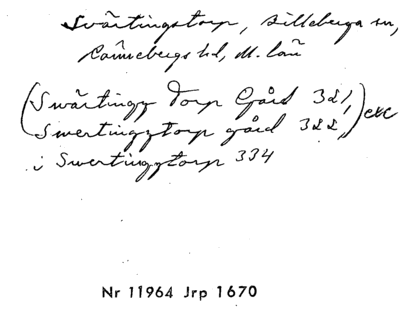 Svärtingstorp, Billeberga sn,
Rönnebergs hd, M. län
(Swärtingz Torp Gård 321,
Swertingztorp gård 322,) exc
i Swertingztorp 334
Nr 11964 Jrp 1670